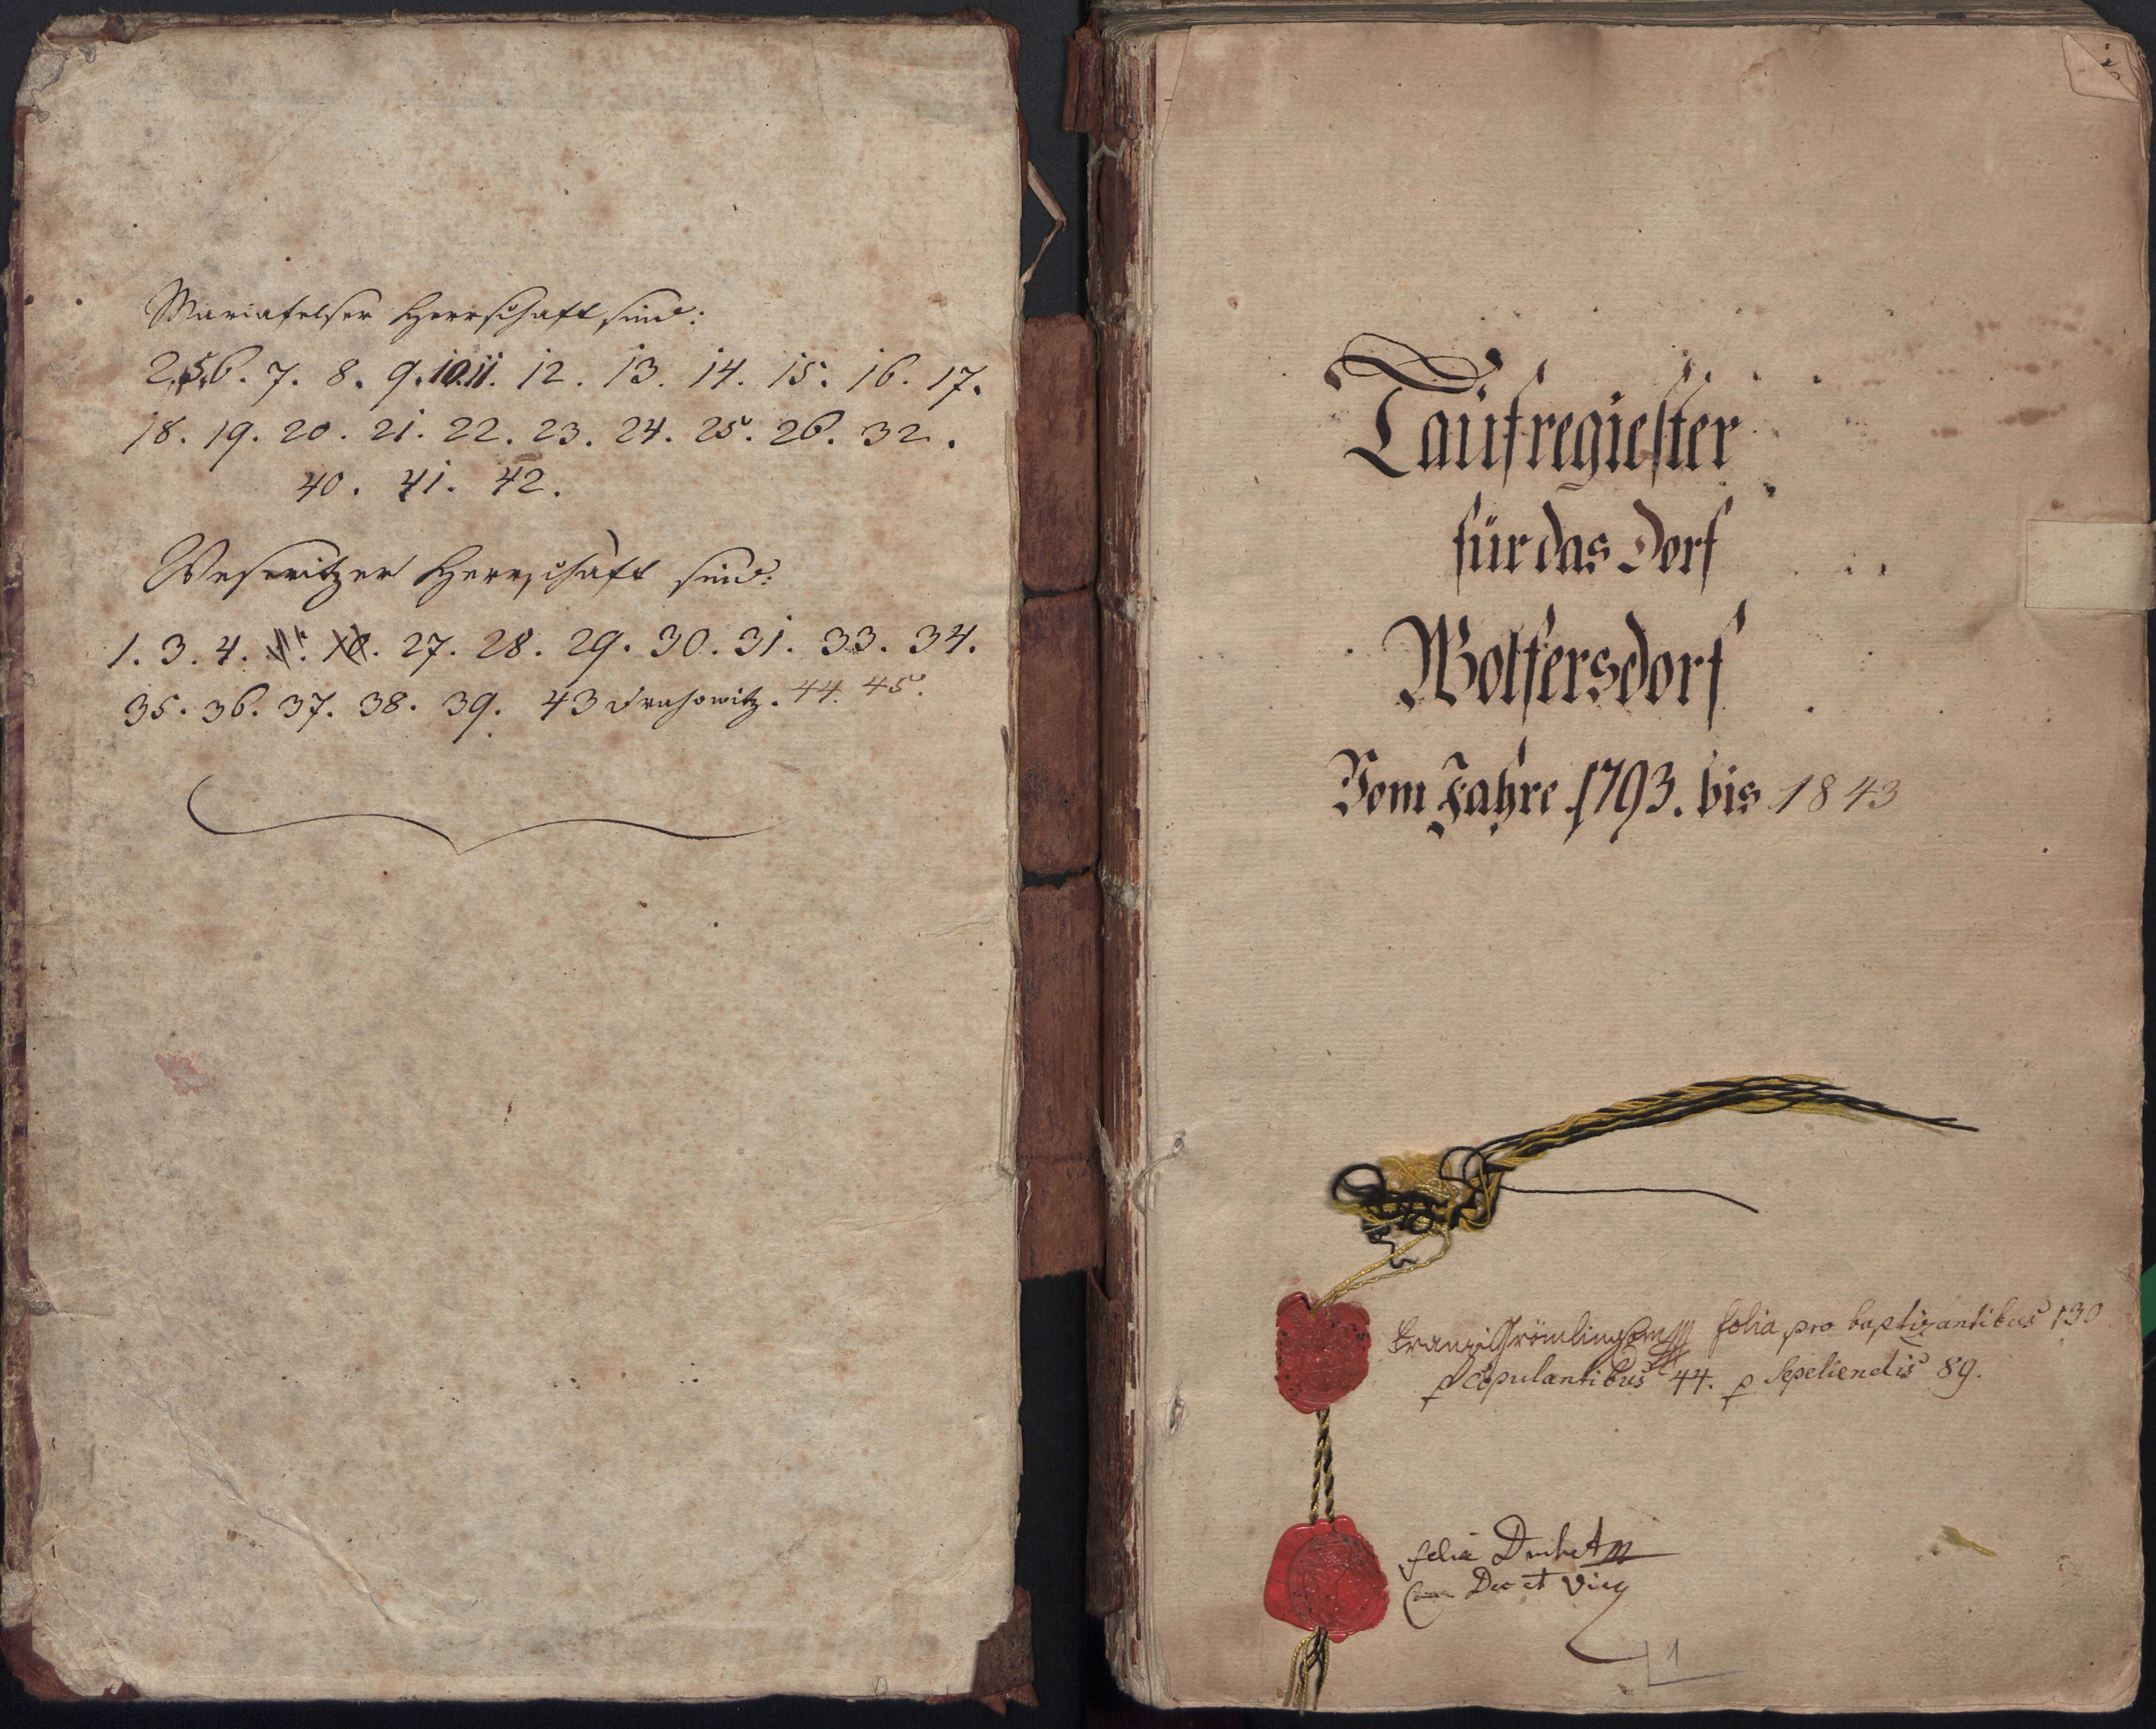 Mariafelser Herrschaft sind:
2. 5. 6. 7. 8. 9. 10. 11. 12. 13. 14. 15. 16. 17.
18. 19. 20. 21. 22. 23. 24. 25. 26. 32.
40. 41. 42.
Weseritzer Herrschaft sind:
1. 3. 4. 27. 28. 29. 30. 31. 33. 34.
35. 36. 37. 38. 39. 43 44. 45.
Taufregiester
für das Dorf
Wolfersdorf
Vom Jahre 1793. bis 1843
folia pro baptizantibus 130
p copulantibus 44. p Sepeliendis 89.
Dec et Vicq
1